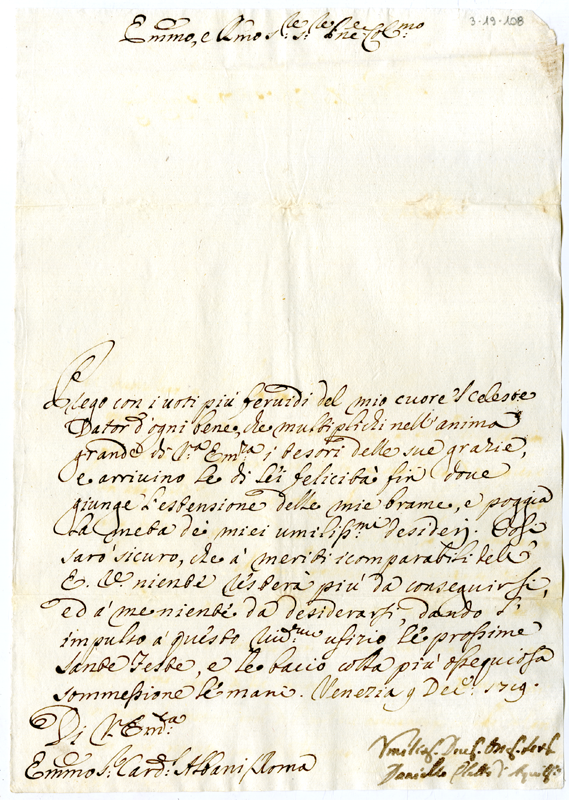 3-19-108
Emmo, e Rmo S.re S.re Pne Col.mo
Prego con i uoti più feruidi del mio cuore 'l Celeste
Dator d'ogni bene, che multiplichi nell'anima
grande di V.ra Em.za i tesori delle sue grazie,
e arriuino le di lei felicità fin doue
giunge l'estensione delle mie brame, e poggia
la meta dei miei umilis.mi desiderj. Così
sarò sicuro, che à meriti icomparabili dell'
E. V.a niente resterà più da conseguirsi,
ed à me niente da desiderarsi, dando l'
impulso à questo ufizio le prossime
Sante Feste, e le baccio colla più ossequiosa
sommessione le mani. Venezia 9 Dec.e 1719.
Di V. Em.za
Emmo S.r Card.l Albani Roma
Daniello d'Aquil.a